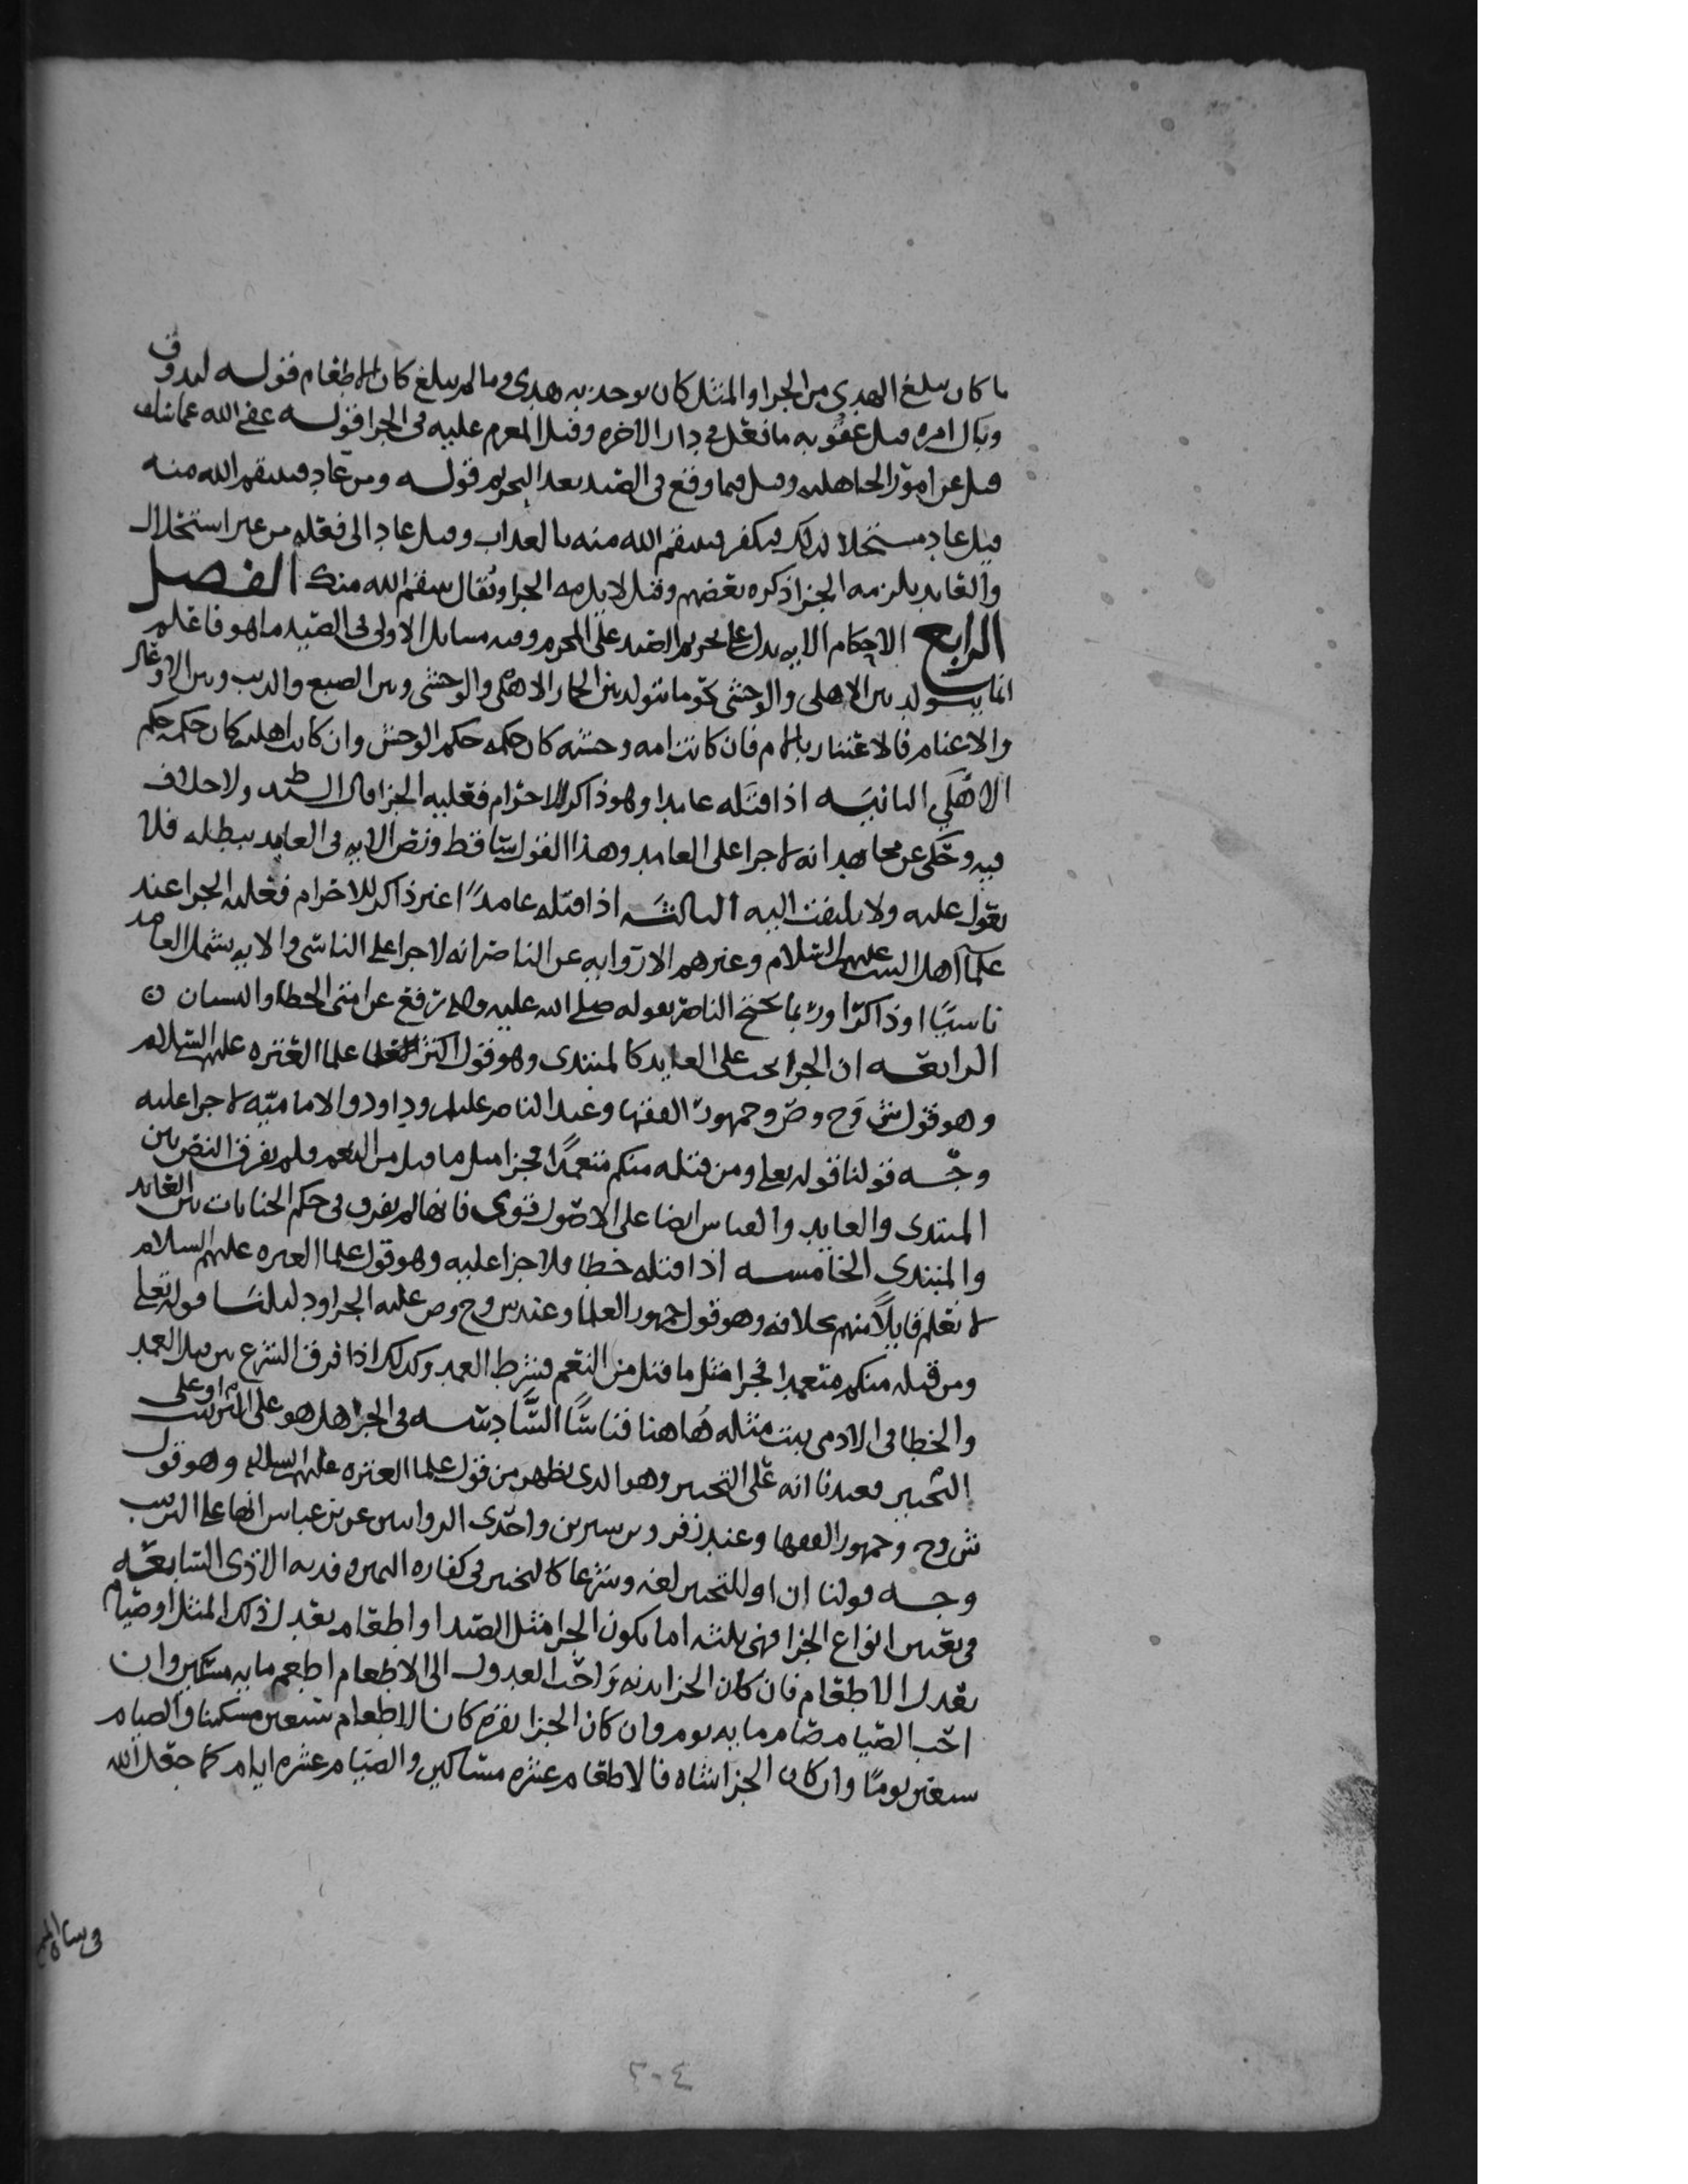 ما كان يبلغ الهدي من الجزا والمثل كان يوخذ به هدي وما لم يبلغ كان الاطعام قوله ليذوق
وبال امره قيل عقوبه ما فعل في دار الاخره وقيل المغرم عليه في الجزا قوله عفى الله عما سلف
قيل عن امور الجاهليه وقيل فيما وقع في الصيد بعد التحريم قوله ومن عاد فينتقم الله منه
قيل عاد مستحلا لذلك فيكفر فينتقم الله منه بالعذاب وقيل عاد الى فعله من غير استحلال
والعايد يلزمه الجزا ذكره بعضهم وقيل لا يلزمه الجزا ويقال ينتقم الله منك الفصل
الرابع الاحكام الايه يدل على تحريم الصيد على المحرم وفيه مسايل الاولى في الصيد ما هو فاعلم
انما يتولد بين الاهلي والوحشي نحو ما يتولد بين الحمار الاهلي والوحشي وبين الضبع والذيب وبين الاوعال
والاغنام فالاعتبار بالام فان كانت امه وحشيه كان حكمه حكم الوحش وان كانت اهليه كان حكمه حكم
الاهلي الثانيه اذا قتله عامدا وهو ذاكر للاحرام فعليه الجزا قال السيد ط ولا خلاف
فيه وحكى عن مجاهد انه لا جزا على العامد وهذا القول ساقط ونص الايه في العامد يبطله فلا
يعول عليه ولا يلتفت اليه الثالثه اذا قتله عامدًا غير ذاكر للاحرام فعليه الجزا عند
علما اهل البيت عليهم السلام وغيرهم الا روايه عن الناصر انه لا جزا على الناسي والايه يشمل العامد
ناسيًا او ذاكرًا وربما يحتج الناصر بقوله صلى الله عليه واله رفع عن امتي الخطا والنسيان
الرابعه ان الجزا يجب على العايد كالمبتدي وهو قول اكثر العلما علما العتره عليهم السلام
وهو قول ش وح وص وجمهور الفقها وعند الناصر عليلم وداود والاماميه لا جزا عليه
وجه قولنا قوله تعلى ومن قتله منكم متعمدًا فجزا مثل ما قتل من النعم ولم يفرق النص بين
المبتدي والعايد والقياس ايضا على الاصول قوي فانها لم يفرق في حكم الجنايات بين العايد
والمبتدي الخامسه اذا قتله خطا فلا جزا عليه وهو قول علما العتره عليهم السلام
لا نعلم قايلًا منهم بخلافه وهو قول جمهور العلما وعند س وح وص عليه الجزا ودليلنا قوله تعلى
ومن قتله منكم متعمدا فجزا مثل ما قتل من النعم فشرط العمد وكذلك اذا فرق الشرع بين قتل العمد
والخطا في الادمي يثبت مثله هاهنا قياسًا السَّادسه في الجزا هل هو على الترتيب ام او على
التخيير فعندنا انه على التخيير وهو الذي يظهر من قول علما العتره عليهم السلام وهو قول
ش وح وجمهور الفقها وعند زفر وبن سيرين واحدى الروايتين عن بن عباس انها على الترتيب
وجه قولنا ان او للتخيير لغه وشرعا كالتخيير في كفاره اليمين وفديه الاذى السابعه
في تعيين انواع الجزا فهي ثلثه اما يكون الجزا مثل الصيد او اطعام يعدل ذلك المثل او صيام
يعدل الاطعام فان كان الجزا بدنه واحب العدول الى الاطعام اطعم مايه مسكين وان
احب الصيام صام مايه يوم وان كان الجزا بقره كان الاطعام سبعين مسكينا والصيام
سبعين يومًا وان كان الجزا شاه فالاطعام عشره مساكين والصيام عشره ايام كما جعل الله
٢٠٤